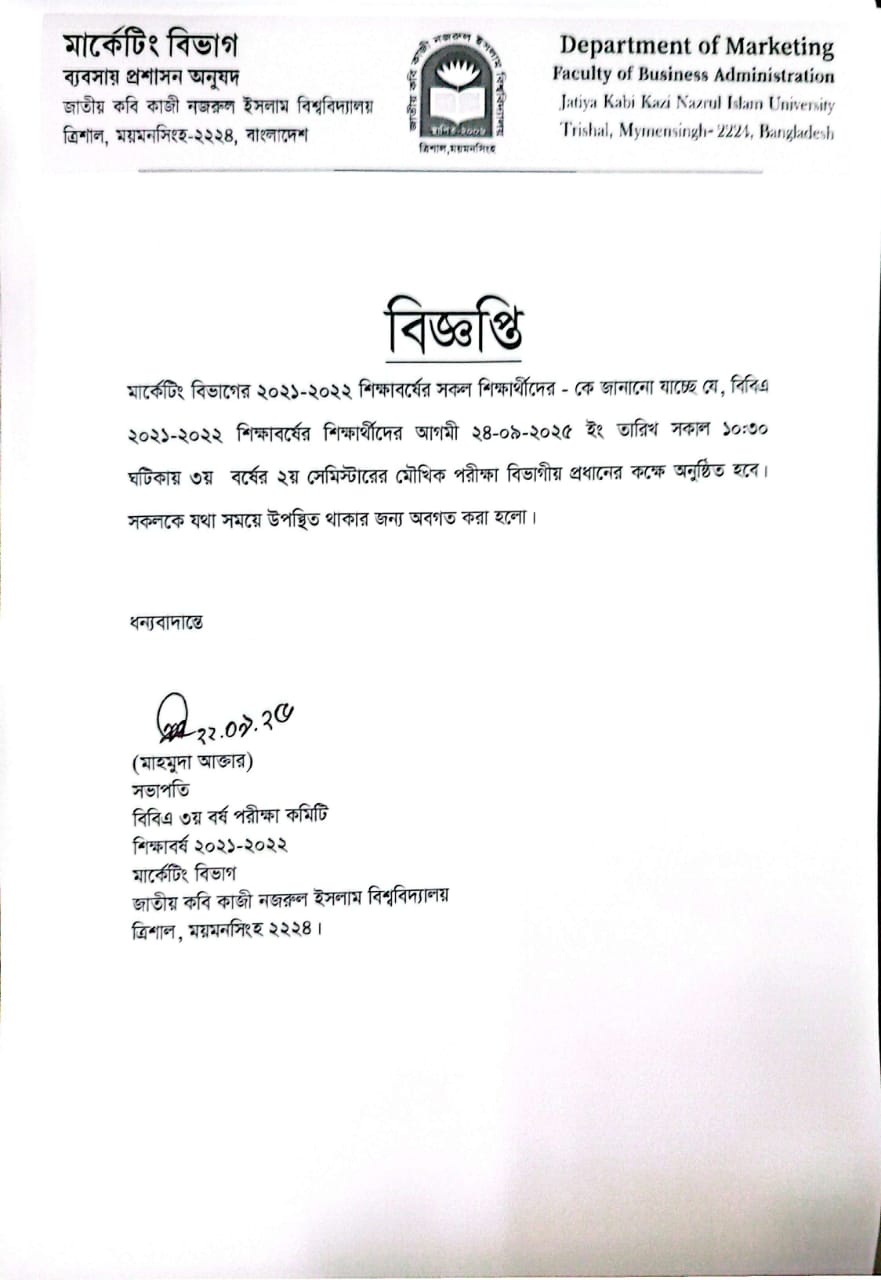 মার্কেটিং বিভাগ
ব্যবসায় প্রশাসন অনুষদ
জাতীয় কবি কাজী নজরুল ইসলাম বিশ্ববিদ্যালয়
ত্রিশাল, ময়মনসিংহ-২২২৪, বাংলাদেশ
জাতীয় কবি কাজী নজরুল ইসলাম বিশ্ববিদ্যালয়
স্থাপিত-২০০৬
ত্রিশাল,ময়মনসিংহ
Department of Marketing
Faculty of Business Administration
Jatiya Kabi Kazi Nazrul Islam University
Trishal, Mymensingh- 2224, Bangladesh
বিজ্ঞপ্তি
মার্কেটিং বিভাগের ২০২১-২০২২ শিক্ষাবর্ষের সকল শিক্ষার্থীদের - কে জানানো যাচ্ছে যে, বিবিএ
২০২১-২০২২ শিক্ষাবর্ষের শিক্ষার্থীদের আগামী ২৪-০৯-২০২৫ ইং তারিখ সকাল ১০:৩০
ঘটিকায় ৩য় বর্ষের ২য় সেমিস্টারের মৌখিক পরীক্ষা বিভাগীয় প্রধানের কক্ষে অনুষ্ঠিত হবে।
সকলকে যথা সময়ে উপস্থিত থাকার জন্য অবগত করা হলো।
ধন্যবাদান্তে
২২.০৯.২৫
(মাহমুদা আক্তার)
সভাপতি
বিবিএ ৩য় বর্ষ পরীক্ষা কমিটি
শিক্ষাবর্ষ ২০২১-২০২২
মার্কেটিং বিভাগ
জাতীয় কবি কাজী নজরুল ইসলাম বিশ্ববিদ্যালয়
ত্রিশাল, ময়মনসিংহ ২২২৪।